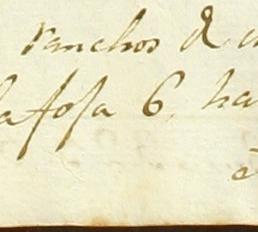 ranchos de
la fosa 6, ha